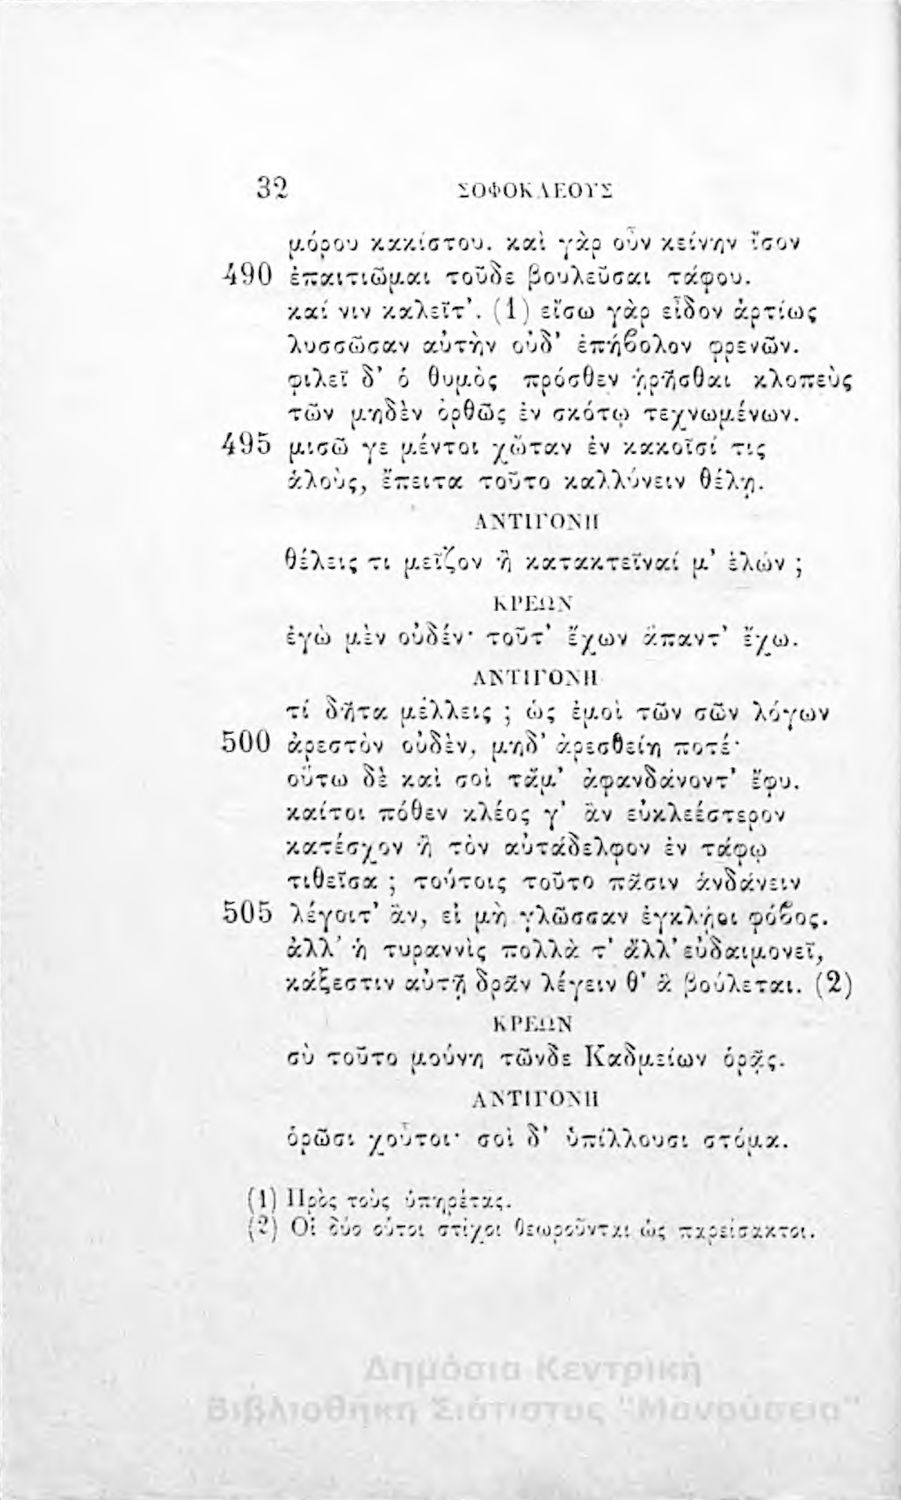 32 ΣΟΦΟΚΛΕΟΥΣ
μόρου κακίστου. καὶ γὰρ οὖν κείνην ἴσον
490 ἐπαιτιῶμαι τοῦδε βουλεῦσαι τάφου.
καί νιν καλεῖτ'. (1) εἴσω γὰρ εἶδον ἀρτίως
λυσσῶσαν αὐτὴν οὐδ' ἐπήϐολον φρενῶν.
φιλεῖ δ' ὁ θυμὸς πρόσθεν ᾑρῆσθαι κλοπεὺς
τῶν μηδὲν ὀρθῶς ἐν σκότῳ τεχνωμένων.
495 μισῶ γε μέντοι χὤταν ἐν κακοῖσί τις
ἁλοὺς, ἔπειτα τοῦτο καλλύνειν θέλῃ.
ΑΝΤΙΓΟΝΗ
θέλεις τι μεῖζον ἢ κατακτεῖναί μ' ἑλών ;
ΚΡΕΩΝ
ἐγὼ μὲν οὐδέν· τοῦτ' ἔχων ἅπαντ' ἔχω.
ΑΝΤΙΓΟΝΗ
τί δῆτα μέλλεις ; ὡς ἐμοὶ τῶν σῶν λόγων
500 ἀρεστὸν οὐδὲν, μηδ' ἀρεσθείη ποτέ·
οὕτω δὲ καὶ σοὶ τἄμ' ἀφανδάνοντ' ἔφυ.
καίτοι πόθεν κλέος γ' ἂν εὐκλεέστερον
κατέσχον ἢ τὸν αὐτάδελφον ἐν τάφῳ
τιθεῖσα ; τούτοις τοῦτο πᾶσιν ἁνδάνειν
505 λέγοιτ' ἂν, εἰ μὴ γλῶσσαν ἐγκλῄοι φόϐος.
ἀλλ' ἡ τυραννὶς πολλὰ τ' ἄλλ' εὐδαιμονεῖ,
κἄξεστιν αὐτῇ δρᾶν λέγειν θ' ἃ βούλεται. (2)
ΚΡΕΩΝ
σὺ τοῦτο μούνη τῶνδε Καδμείων ὁρᾷς.
ΑΝΤΙΓΟΝΗ
ὁρῶσι χοὖτοι· σοὶ δ' ὑπίλλουσι στόμα.
(1) Πρὸς τοὺς ὑπηρέτας.
(2) Οἱ δύο οὗτοι στίχοι θεωροῦνται ὡς παρείσακτοι.
Δημόσια Κεντρική
Βιβλιοθήκη Σιάτιστας "Μανούσεια"